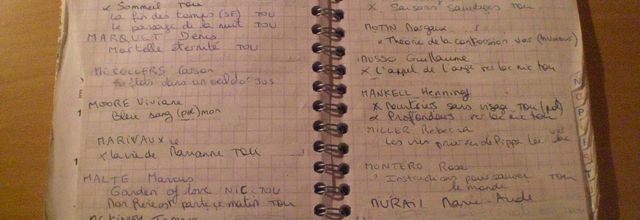 x Sommeil TOU
La fin des temps (SF) TOU
Le passage de la nuit TOU
MARQUET Denis
Mortelle éternité TOU
McCULLERS Carson
dans un oeil d'or TUS
MOORE Viviane
Bleu sang (pol) mon
MARIVAUX
x la vie de Marianne TOU
MALTE Marcus
Garden of love NIC. TOU
Mon frère est parti ce matin TOU
x Saisons sauvages TOU
MOTIN Margaux
x Théorie de la contorsion vas (humour)
MUSSO Guillaume
x L'appel de l'ange vec lac nic tou
MANKELL Henning
x Meurtriers sans visage TOU (pol)
x Profondeurs vec lac nic tou
MILLER Rebecca
Les vies privées de Pippa Lee
MONTERO Rosa
Instructions pour sauver TOU
le monde
MURAIL Marie-Aude